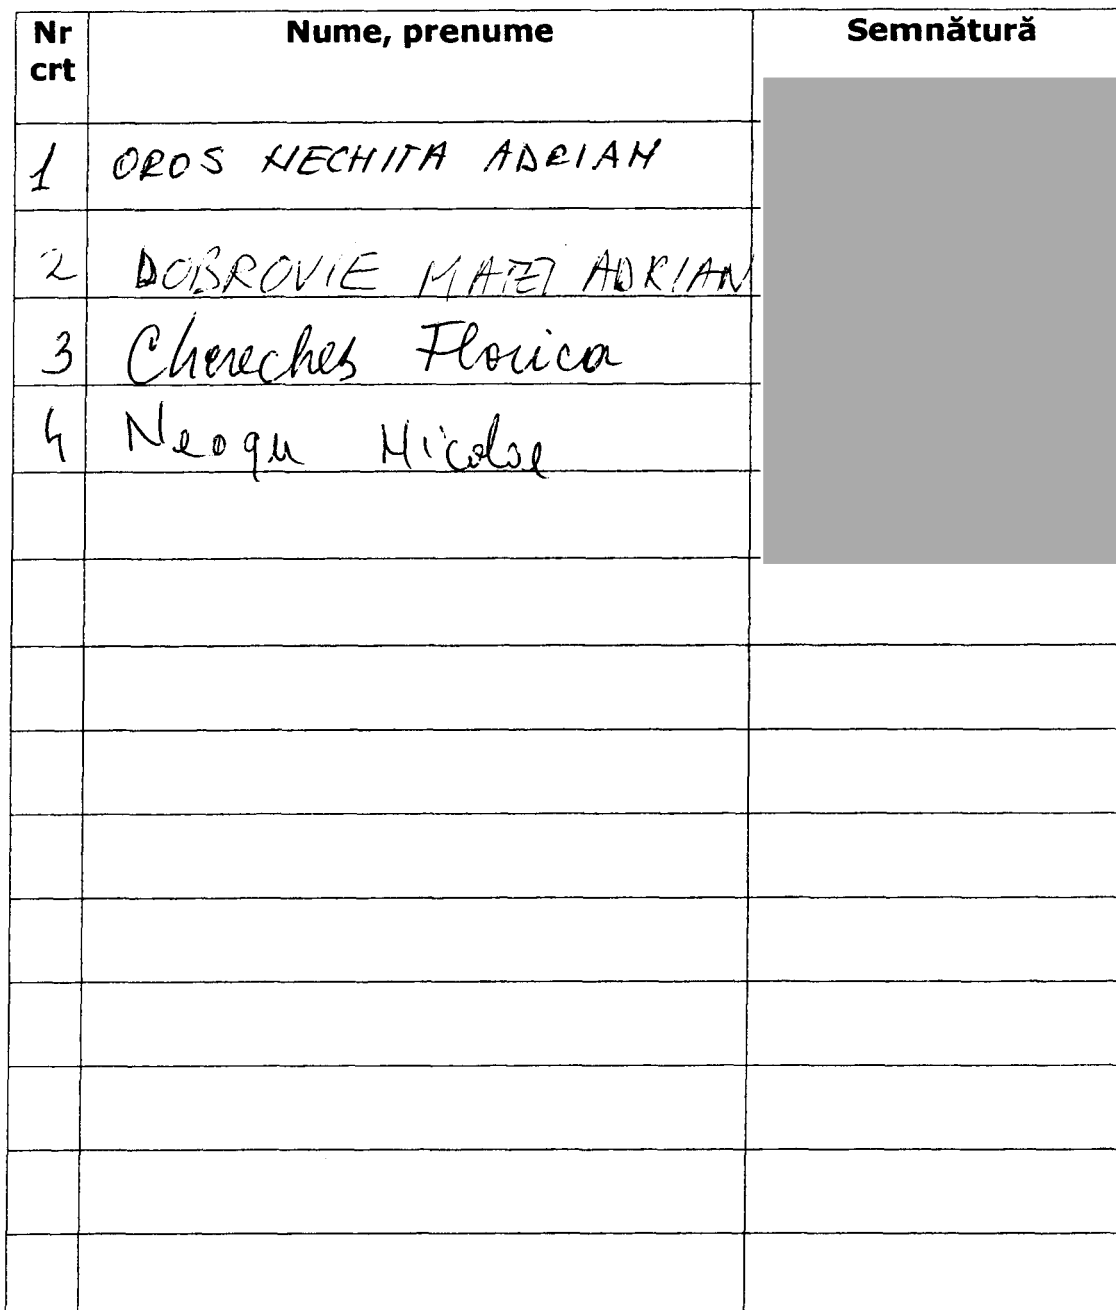 Nr crt Nume, prenume Semnătură
1 OROS NECHITA ADRIAN
2 DOBROVIE MATEI ADRIAN
3 Chereches Florica
4 Neagu Nicolae